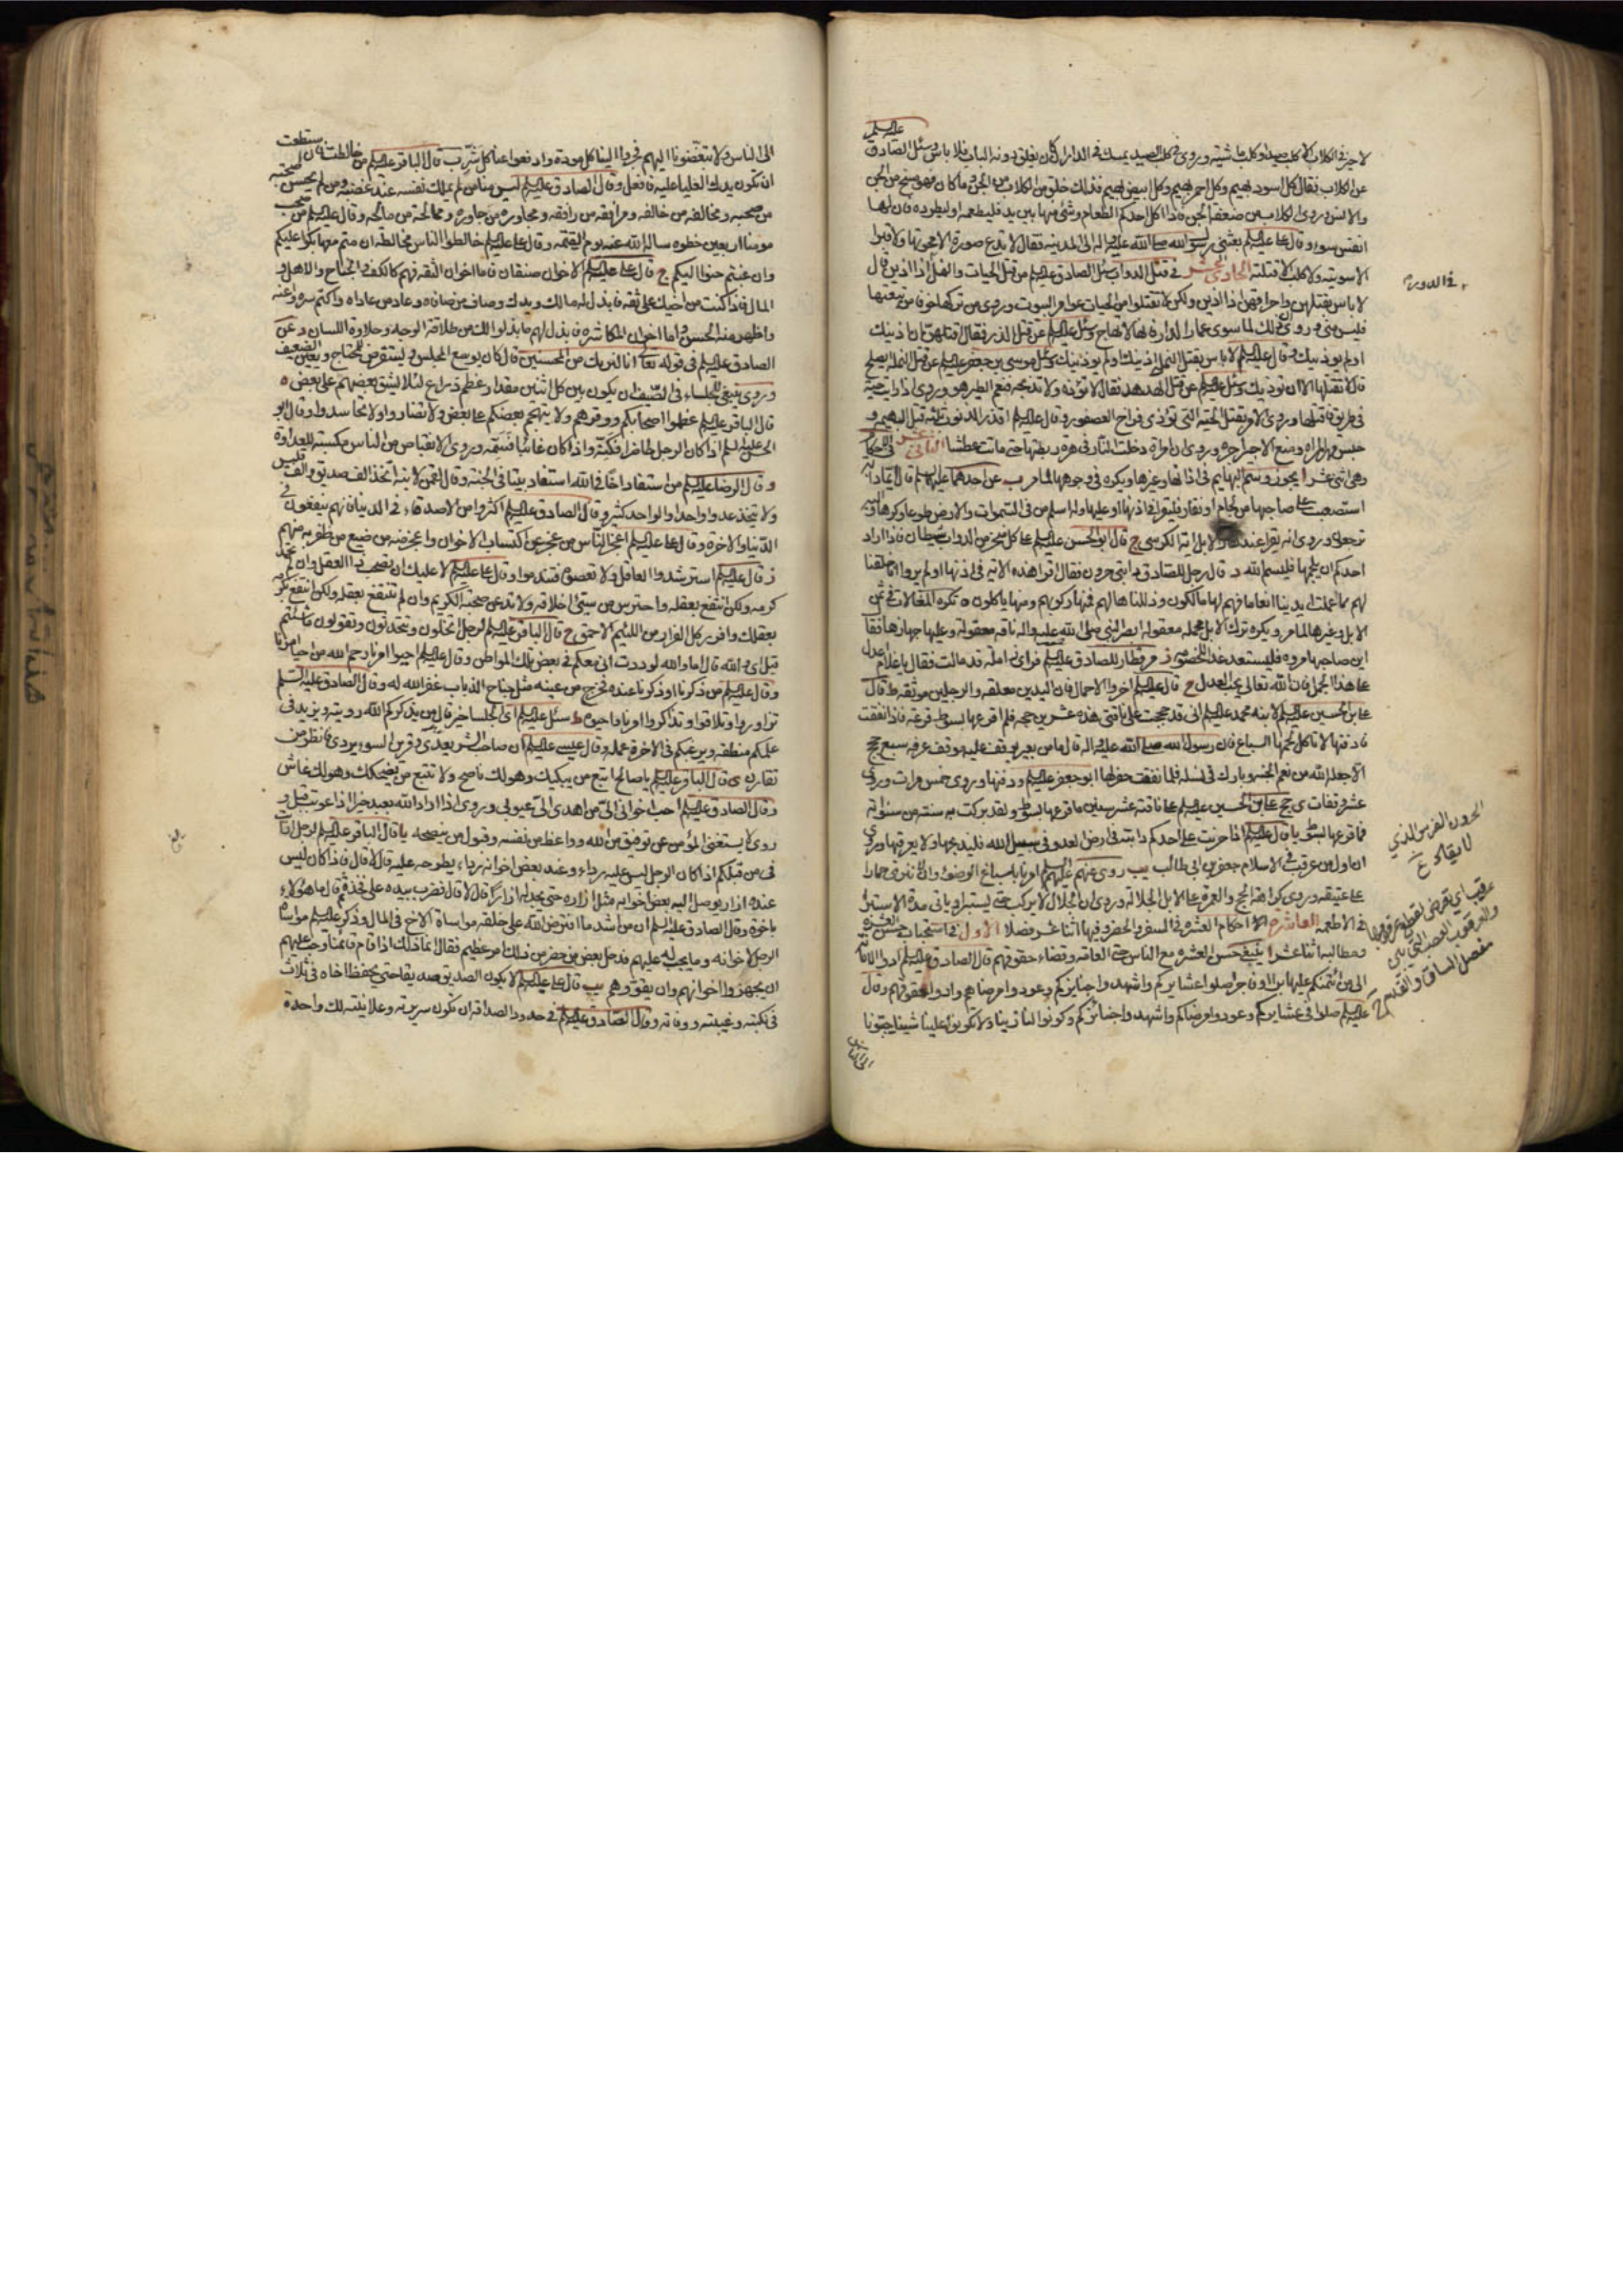 لا خير في الكلاب الا كلب صيد او كلب ماشيته وروى في كلب الصيد يمسك في الدار ان كان يغلق دونه الباب فلا باس وسئل الصادق عليه السلم
عن الكلاب فقال كل اسود بهيم وكل احمر بهيم وكل ابيض بهيم فذلك خلق من الكلاب من الجن وما كان
والانس وروى الكلاب من ضعفة الجن فاذا اكل احدكم الطعام وشئ منها بين يديه فليطعمه او ليطرده فان لها
انفس سوء وقال على عليه السلم بعثنى رسول الله صلى الله عليه واله الى المدينه فقال لا تدع صورة الا محوتها ولا قبرا
الا سويته ولا كلبا الا قتلته الحادى عشر فى قتل الدواب سئل الصادق عليه السلم من قتل الحيات والنمل اذا اذين قال
لا باس بقتلهن واحراقهن اذا اذين ولكن لا تقتلوا من الحيات عوامر البيوت وروى من تركها خوفا من تبعتها
فليس منى
اولم يوذينك وقال عليه السلم لا باس بقتل النمل اذينك اولم يوذينك وسئل موسى بن جعفر عليه السلم عن قتل النملة ايصلح
قال لا تقتلها الا ان توذيك وسئل عليه السلم عن قتل الهدهد فقال لا توذه ولا تذبحه فنعم الطير هو وروى اذا رايت حية
فى طريق فاقتلها وروى الامر بقتل الحية التى توذى فراخ العصفور وقال عليه السلم اقذر الذنوب ثلثه قتل البهيمه و
حبس مهر المراه ومنع الاجير اجره وروى ان امراة دخلت النار فى هرة ربطتها حتى ماتت عطشا الثانى عشر فى احكام
وهى اثنى عشر ا يجوز وسم البهايم فى اذانها وغيرها ويكره فى وجوهها لما مر ب عن احدهما عليهما السلم قال ايما دابه
استصعبت على صاحبها من لجام او نفار فليقرا فى اذنها او عليها وله اسلم من فى السموات والارض طوعا وكرها واليه
ترجعون وروى انه يقرا عند نفار الابل اية الكرسى ج قال ابو الحسن عليه السلم على كل منخر من الدواب شيطان فاذا اراد
احدكم ان يلجمها فليسم الله د قال رجل للصادق دابتى حرون فقال اقرا هذه الايه فى اذنها اولم يروا انا خلقنا
لهم مما عملت ايدينا انعاما فهم لها مالكون وذللناها لهم فمنها ركوبهم ومنها ياكلون ه تكره المغالات فى ثمن
الابل وغيرها لما مر و يكره ترك الابل محمله معقوله ابصر النبى صلى الله عليه واله ناقه معقولة وعليها جهازها فقا
اين صاحبها مروه فليستعد غدا للخصومه ز مر قطار للصادق عليه السلم فراى زامله قد مالت فقال يا غلام اعدل
على هذا الحمل فان الله تعالى يحب العدل ح قال عليه السلم اخروا الاحمال فان اليدين معلقه والرجلين موثقه ط قال
على بن الحسين عليه السلم لابنه محمد عليه السلم انى قد حججت على ناقتى هذه عشرين حجه فلم اقرعها بسوط قرعة فاذا نفقت
فادفنها لا تاكل لحمها السباع فان رسول الله صلى الله عليه واله قال ما من بعير يوقف عليه موقف عرفه سبع حجج
الا جعله الله من نعم الجنه وبارك فى نسله فلما نفقت حفر لها ابو جعفر عليه السلم ودفنها وروى خمس مرات وروى
عشر وقفات ى حج على بن الحسين عليه السلم على ناقته عشر سنين ما قرعها بسوط ولقد بركت به سنته من سنواته
فما قرعها بسوط يا قال عليه السلم اذا حرنت على احدكم دابته فى ارض العدو فى سبيل الله فليذبحها ولا يعرقبها وروى
ان اول من عرقب فى الاسلام جعفر بن ابى طالب يب روى عنهم عليهم السلم امرنا باسباغ الوضوء وان لا ننزى حمارا
على عتيقه وروى كراهة الحج والعمرة على الابل الجلالة وروى ان الجلال لا يركب حتى يستبرا وياتى مدة الاستبراء
فى الاطعمه العاشر احكام العشره فى السفر والحضر وفيها اثنا عشر فصلا الاول فى استحباب حسن العشره
ومطالبه اثنا عشر ا ينبغى حسن العشره مع الناس حتى العامه وقضاء حقوقهم قال الصادق عليه السلم ادوا الامانة
الى من ائتمنكم عليها برا او فاجرا صلوا عشايركم واشهدوا جنايزكم وعودوا مرضاهم وادوا حقوقهم وقال
عليه السلم صلوا فى عشايركم وعودوا مرضاكم واشهدوا جنائزكم وكونوا لنا زينا ولا تكونوا علينا شينا حببونا
فى الدوره
الحرون الفرس الذي
لا ينقاد
مفصل الساق والقدم
الى الناس
الى الناس ولا تبغضونا اليهم فجروا الينا كل مودة وادفعوا عنا كل شر ب قال الباقر عليه السلم من خالطت فان استطعت
ان تكون يدك العليا عليه فافعل وقال الصادق عليه السلم ليس منا من لم يملك نفسه عند غضبه ومن لم يحسن صحبة
من صحبه ومخالفه من خالفه ومرافقه من رافقه ومجاورة من جاوره وممالحة من مالحه وقال عليه السلم من صحب
مومنا اربعين خطوه ساله الله عنه يوم القيمه وقال على عليه السلم خالطوا الناس مخالطه ان متم معها بكوا عليكم
وان غبتم حنوا اليكم ج قال على عليه السلم الاخوان صنفان فاما اخوان الثقه فهم كالكف والجناح والاهل و
المال فاذا كنت من اخيك على ثقه فابذل له مالك ويدك وصاف من صافاه وعاد من عاداه واكتم سره واعنه
واظهر منه الحسن واما اخوان المكاشره فابذل لهم ما بذلوا لك من طلاقة الوجه وحلاوة اللسان د عن
الصادق عليه السلم فى قوله تعالى انا نراك من المحسنين قال كان يوسع المجلس ويستقرض للمحتاج ويعين الضعيف
وروى ينبغى للجلساء فى الصيف ان يكون بين كل اثنين مقدار عظم ذراع لئلا يشق بعضهم على بعض ه
قال الباقر عليه السلم عظموا اصحابكم ووقروهم ولا يتهجم بعضكم على بعض ولا تضاروا ولا تحاسدوا و قال ابو
الحسن عليه السلم اذا كان الرجل حاضرا فكنه واذا كان غائبا فسمه وروى الانقباض من الناس مكسبة للعداوة
وقال الرضا عليه السلم من استفاد اخا فى الله استفاد بيتا فى الجنة وقال لقمن لابنه اتخذ الف صديق والف قليل
ولا تتخذ عدوا واحدا والواحد كثير وقال الصادق عليه السلم اكثروا من الاصدقاء فى الدنيا فانهم ينفعون فى
الدنيا والاخرة وقال على عليه السلم اعجز الناس من عجز عن اكتساب الاخوان واعجز منه من ضيع من ظفر به منهم
ز قال عليه السلم استرشدوا العاقل ولا تعصوه فتندموا وقال على عليه السلم لا عليك ان تصحب ذا العقل وان لم تحمد
كرمه ولكن انتفع بعقله واحترس من سيئ اخلاقه ولا تدعن صحبة الكريم وان لم تنتفع بعقله ولكن انتفع بكرمه
بعقلك وافرر كل الفرار من اللئيم الاحمق ح قال الباقر عليه السلم لرجل اتخلون وتتحدثون وتقولون ما شئتم
قيل اى والله قال اما والله لوددت انى معكم فى بعض تلك المواطن وقال عليه السلم احيوا امرنا رحم الله من احيا امرنا
وقال عليه السلم من ذكرنا او ذكرنا عنده فخرج من عينه مثل جناح الذباب غفر الله له وقال الصادق عليه السلم
تزاوروا وتلاقوا وتذاكروا امرنا واحيوه ط سئل عليه السلم اى الجلساء خير قال من يذكركم الله رويته ويزيد فى
علمكم منطقه ويرغبكم فى الاخرة عمله وقال عيسى عليه السلم ان صاحب الشر يعدى وقرين السوء يردى فانظر من
تقارن ى قال الباقر عليه السلم يا صالح اتبع من يبكيك وهو لك ناصح ولا تتبع من يضحكك وهو لك غاش
وقال الصادق عليه السلم احب اخوانى الى من اهدى الى عيوبى وروى اذا اراد الله بعبد خيرا اذا عوتب قبل و
روى لا يستغنى المؤمن عن توفيق من الله وواعظ من نفسه وقبول من ينصحه يا قال الباقر عليه السلم لرجل ارايت
فى من قبلكم اذا كان الرجل ليس عليه رداء وعند بعض اخوانه رداء يطرحه عليه قال لا قال فاذا كان ليس
عنده ازار يوصل اليه بعض اخوانه مثل ازاره حتى يجد له ازارا قال لا قال فضرب بيده على فخذه ثم قال ما هؤلاء
باخوة وقال الصادق عليه السلم ان من اشد ما افترض الله على خلقه مواساة الاخ فى المال وذكر عليه السلم مواساة
الرجل لاخوانه وما يجب له عليهم فدخل بعض من حضر من ذلك امر عظيم فقال انما ذلك اذا قام قائمنا وجب عليهم
ان يجهزوا اخوانهم وان يقووهم يب قال على عليه السلم لا يكون الصديق صديقا حتى يحفظ اخاه فى ثلاث
فى نكبته وغيبته ووفاته وقال الصادق عليه السلم فى حدود الصداقة ان تكون سريرته وعلانيته لك واحدة